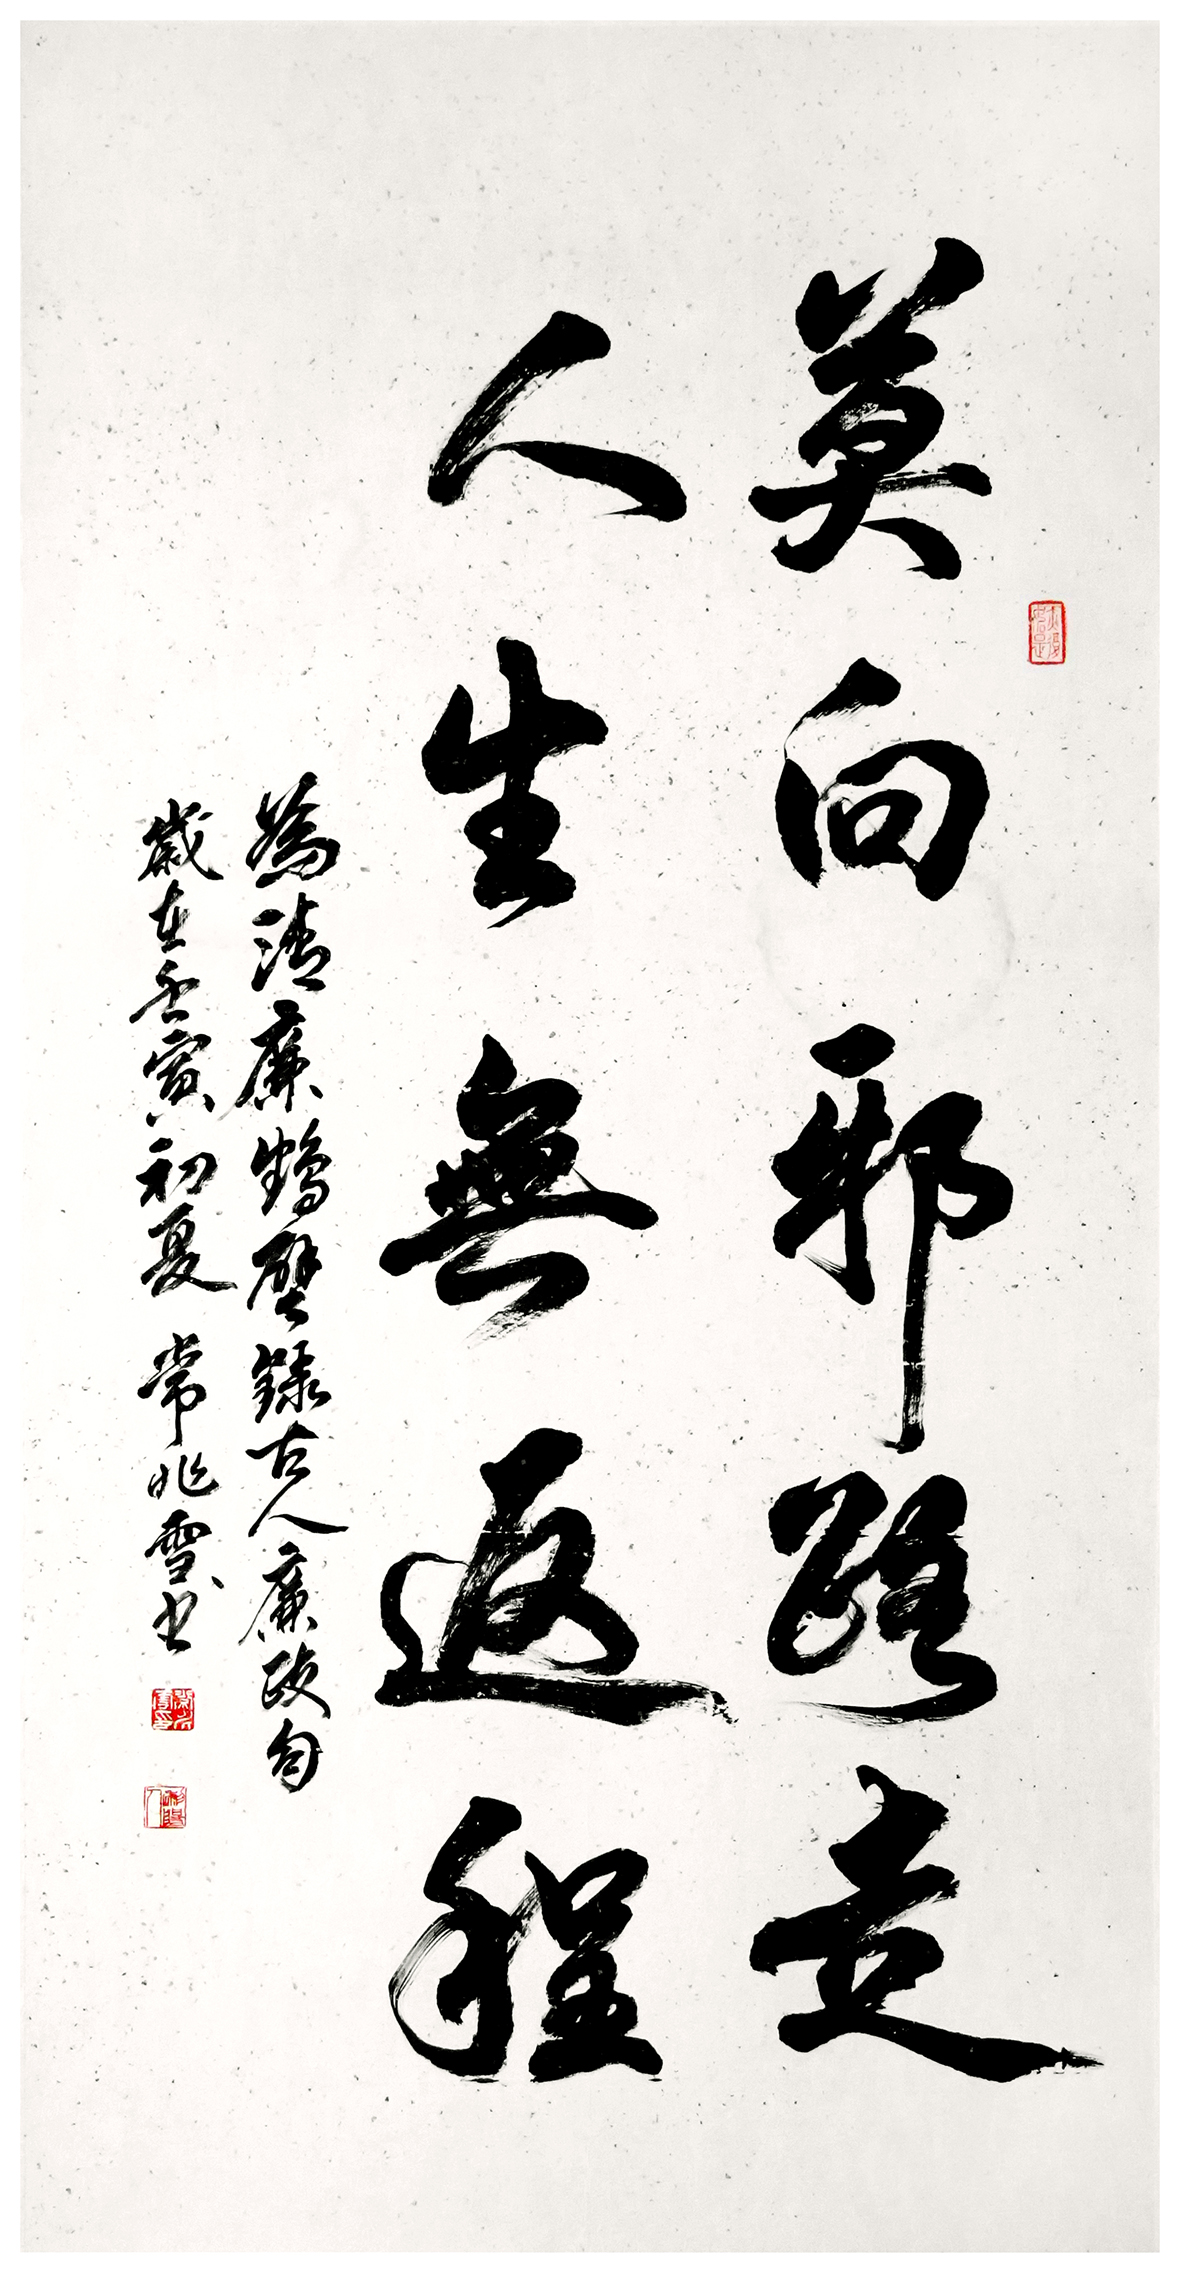 莫向邪路走
人生無返程
為清廉鶴壁錄古人廉政句
歲在壬寅初夏 常兆雪书